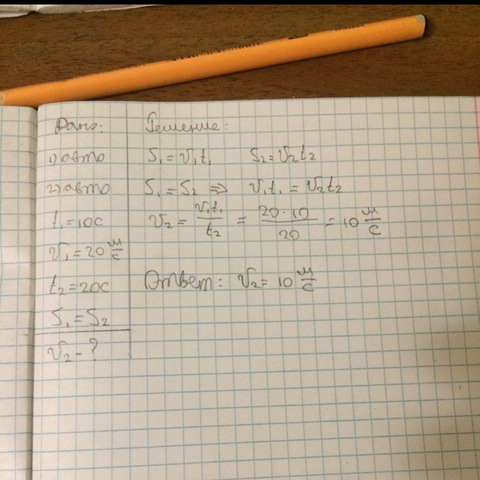 Дано:
1) авто
2) авто
t₁=10c
v₁=20 м/с
t₂=20c
S₁=S₂
v₂-?
Решение:
S₁=v₁t₁ S₂=v₂t₂
S₁=S₂ ⇒ v₁t₁=v₂t₂
v₂ = v₁t₁/t₂ = 20·10/20 = 10 м/с
Ответ: v₂= 10 м/с